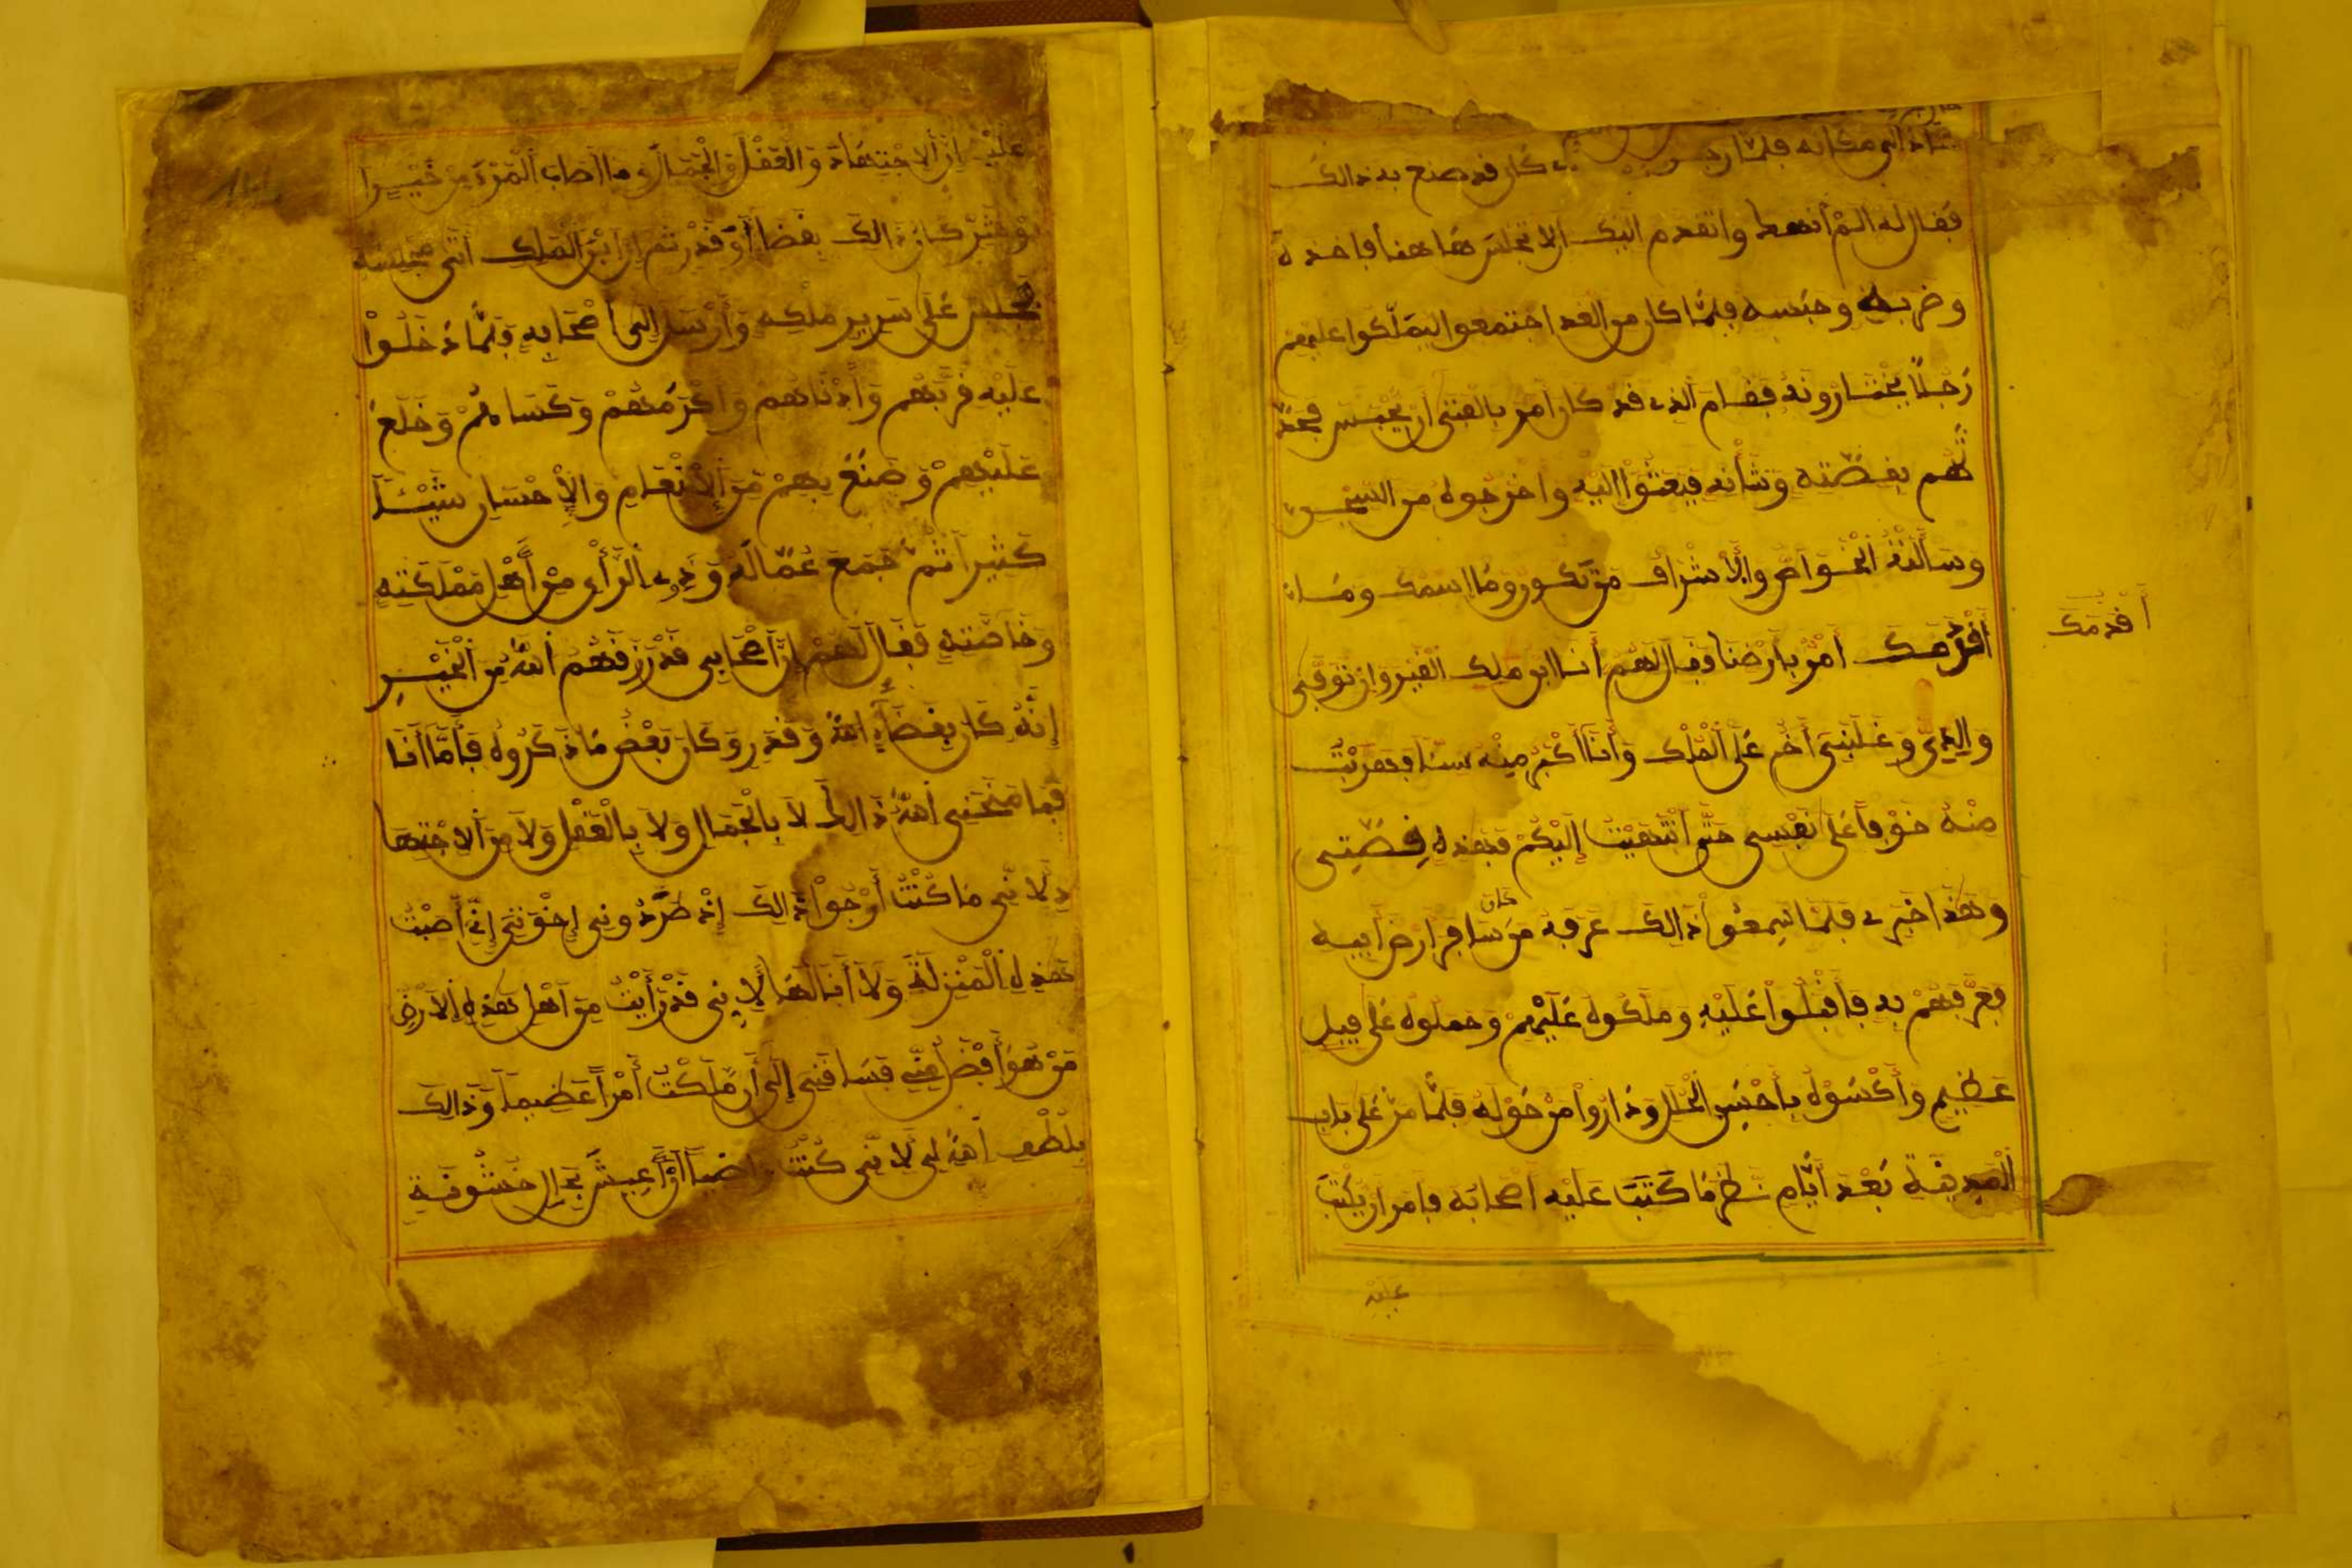 عاد الى مكانه فلما كان قد صنع به ذالك
فقال له الم انهك واتقدم اليك الا تجلس هاهنا فاخذه
وضربه وحبسه فلمّا كان من الغد اجتمعوا ليمَلّكوا عليهم
رَجُلاً يَخْتَارُونَهُ فقام الذي قد كان امر بالفتى أن يُحْبَس فحَدَّ
ثهم بقصّته وشأنه فبعثوا اليه واخرجوه من السجن
وسألته الخواص والأشراف من تكون وما اسمك وما
أقدمك أمر بأرضنا وقال لهم أنا ابن ملك القيروان توفي
والدي وغلبني أخي على الملك وأنا أكبر منه سنا فهربت
منه خوفا على نفسي حتى انتهيت إليكم فهذه قصتي
وهذا خبري فلما سمعوا ذالك عرفه من كان سافر ارض أبيه
فعرفهم به فأقبلوا عليه وملكوه عليهم وحملوه على فيل
عظيم وأكسوه بأحسن الحلل وداروا من حوله فلمّا مر على باب
المدينة بعد أيّام نظر ما كتب عليه اصحابه فامر ان يكتب
عليه
أقدمك
عليه إن الاجتهاد والعقل والجمال وما أصاب المرء من خير
وشر كان ذالك بقضاء وقدر ثم إن ابن الملك أتى مجلسه
فجلس على سرير ملكه وأرسل إلى أصحابه فلمّا دخلوا
عليه قربهم وأدناهم وأكرمهم وكساهم وخلع
عليهم وصنع بهم من الإنعام والإحسان شيئا
كثيرا ثم جمع عماله وذوي الرأي من أهل مملكته
وخاصته فقال لهم إن أصحابي قد رزقهم الله من الخير
إنه كان بقضاء الله وقدر وكان بعض ما ذكروه فأما أنا
فما منحني الله ذالك لا بالجمال ولا بالعقل ولا من الاجتها
د لأني ما كنت أرجوا ذالك إذ طردوني إخوتي إني أصبت
هذه المنزلة ولا أنالها لأني قد رأيت من أهل هذه الأرض
من هو أفضل مني فساقني إلى أن ملكت أمرا عظيما وذالك
بلطف الله لي لأني كنت راضيا أن أعيش بحال خشونة